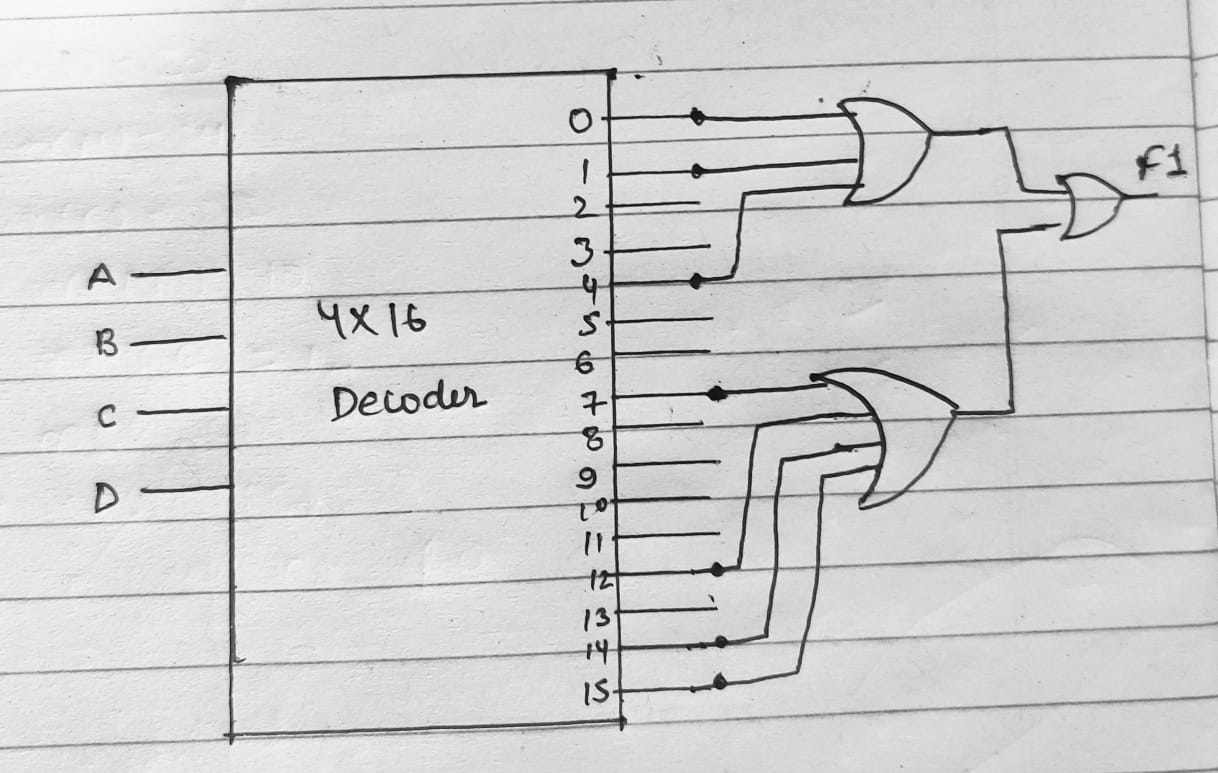 0
1
F1
2
3
A
4
4X16
5
B
6
Decoder
7
C
8
9
D
10
11
12
13
14
15